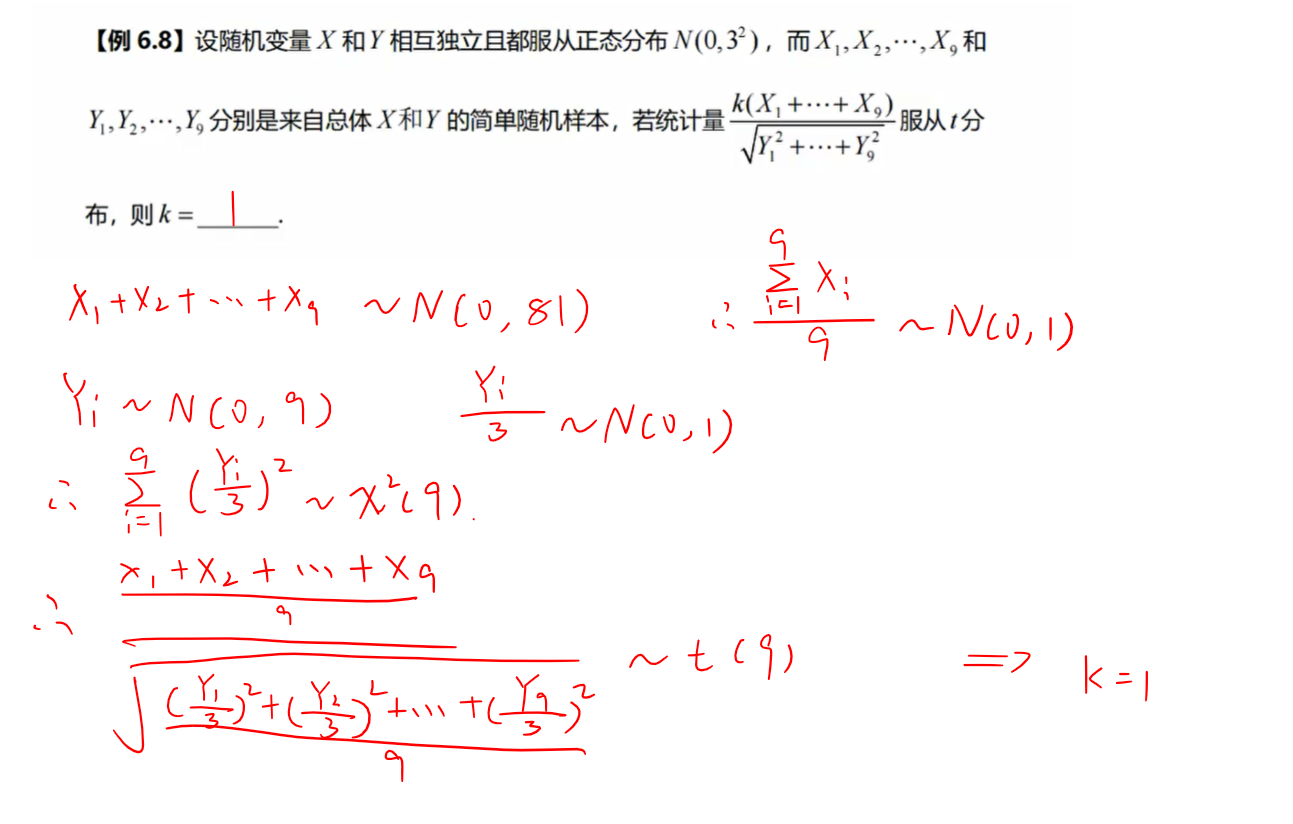 【例 6.8】设随机变量 X 和 Y 相互独立且都服从正态分布 N(0,3²)，而 X₁,X₂,⋯,X₉ 和
Y₁,Y₂,⋯,Y₉ 分别是来自总体 X 和 Y 的简单随机样本，若统计量 k(X₁+⋯+X₉)/√(Y₁²+⋯+Y₉²) 服从 t 分
布，则 k = 1 .
X₁+X₂+⋯+X₉ ~ N(0,81) ∴ (∑_{i=1}^{9} Xᵢ)/9 ~ N(0,1)
Yᵢ ~ N(0,9) Yᵢ/3 ~ N(0,1)
∴ ∑_{i=1}^{9} (Yᵢ/3)² ~ χ²(9).
∴ ((X₁+X₂+⋯+X₉)/9)/√(((Y₁/3)²+(Y₂/3)²+⋯+(Y₉/3)²)/9) ~ t(9) ⇒ k=1